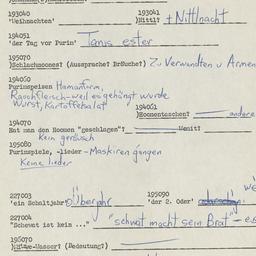 193040 193041
'Weihnachten' )Nittl? + Nittlnacht
194051
'der Tag vor Purim' Tanis ester
195070
)Schlachmones? (Aussprache? Bräuche?) Zu Verwandten u Armen
194060
Purimspeisen Hamanturm,
Rauchfleisch - weil es gehängt wurde
Wurst, Kartoffelsalat 194061
)Homentaschen? andere
194070
Hat man den Homon "geschlagen"? Womit?
Kein geräusch
195080
Purimspiele, -lieder - Maskiren gangen
Keine lieder
227003 195090
'ein Schaltjahr' Überjahr 'der 2. Oder'
227004
"Schevet ist kein ..." "schwat macht sein Brat" - es
195070
(Bedeutung?)